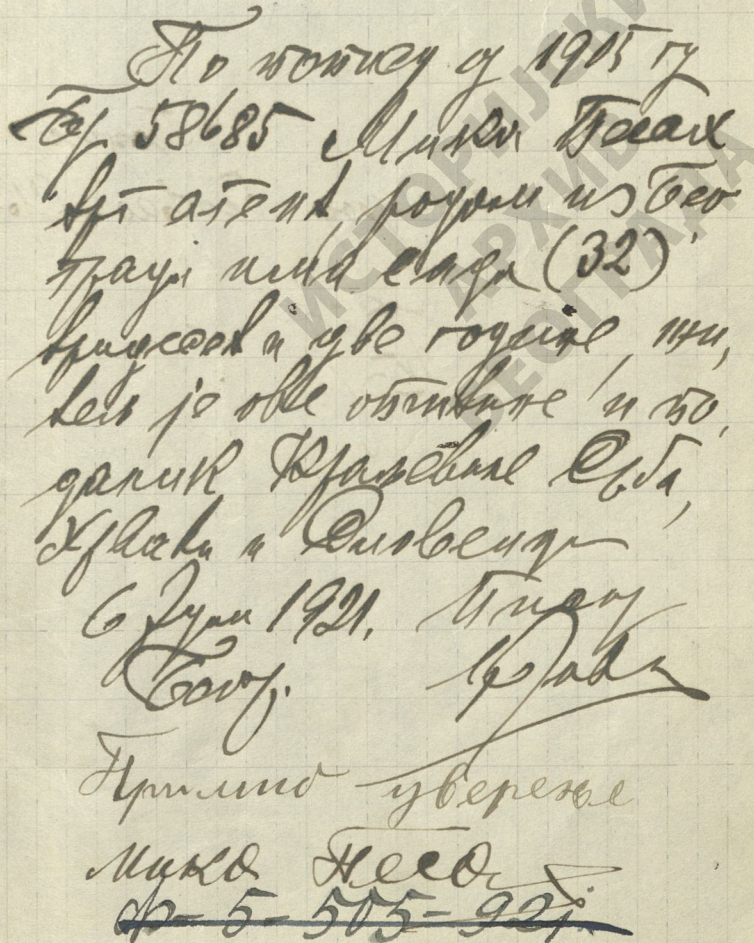 По попису од 1905 гд
Бр. 58685 Мика Песах
трг. агент, родом из Бео
града има сада (32)
тридесет и две године, жи,
тељ је ове општине и по,
даник Краљевине Срба,
Хрвата и Словенаца
6 Јула 1921. Писар
Беогр.
Примио уверење
Мика Песах
5-505-921
ИСТОРИЈСКИ
АРХИВ
БЕОГРАДА